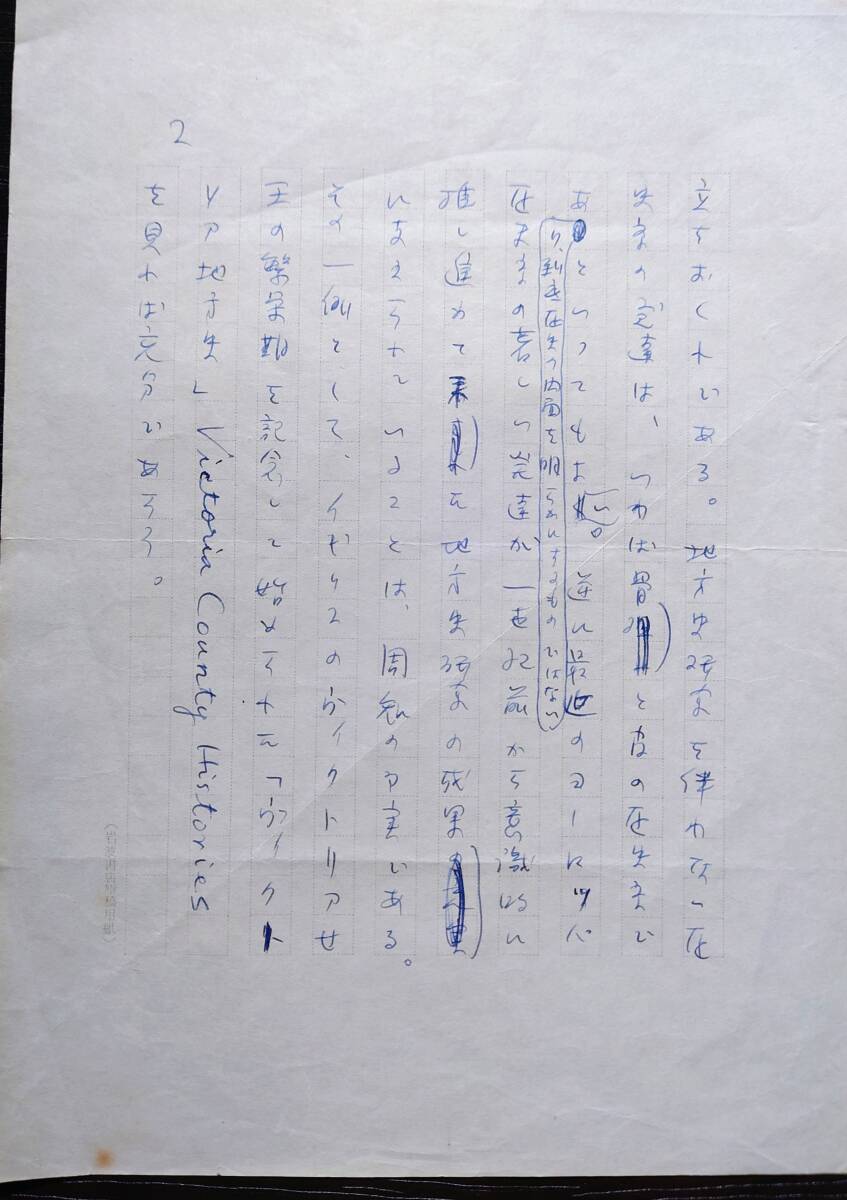 2
立ちおくれである。地方史研究を伴わない歴
史学の発達は、いわば骨と皮の歴史学で
あ といってもよい。逆に最近のヨーロッパ
り、到底歴史の内面を明らかにするものではない
歴史学の著しい発達が一世紀前から意識的に
推し進めて来た地方史研究の成果
に支えられていることは、周知の事実である。
その一例として、イギリスのヴィクトリア女
王の繁栄期を記念して始められた「ヴィクト
リア地方史」Victoria County Histories
を見れば充分であろう。
(岩波書店原稿用紙)